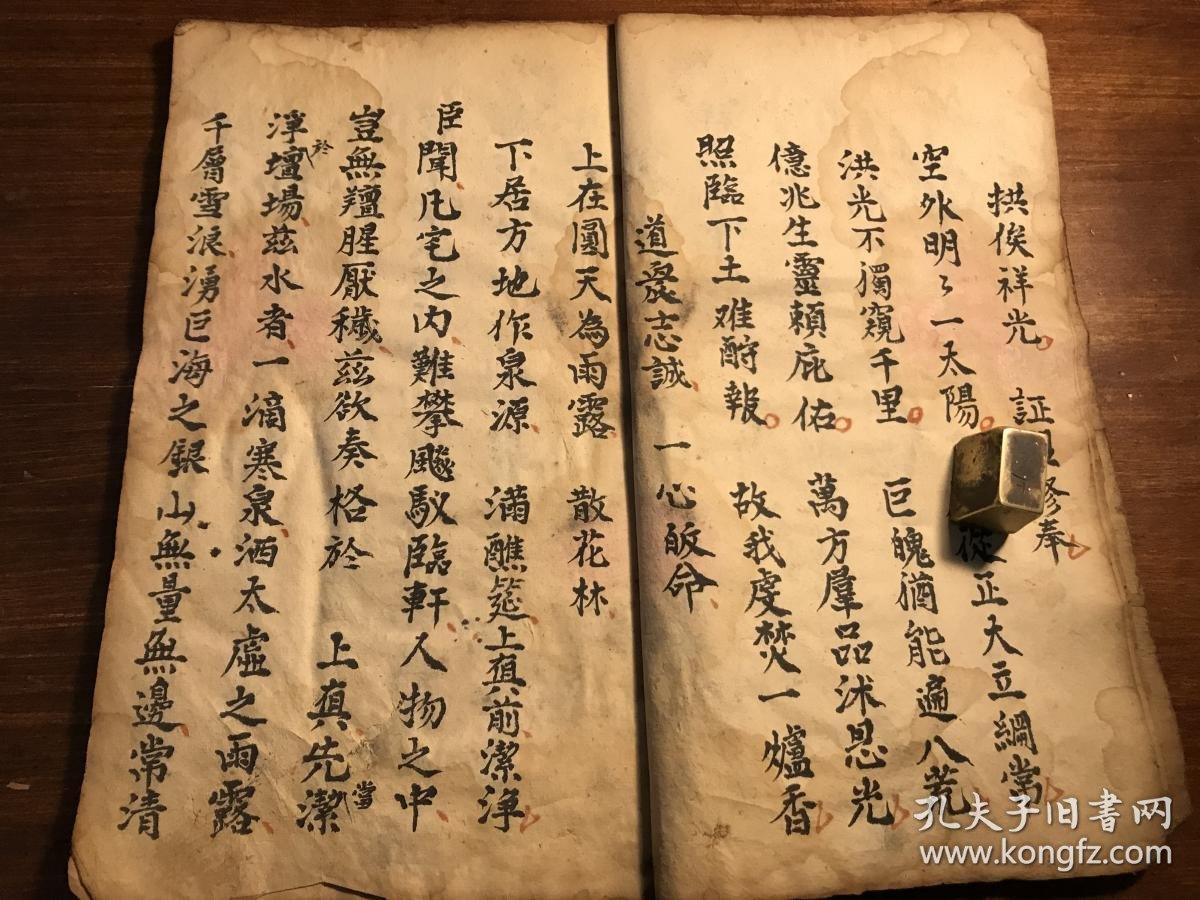 拱俟祥光 証 修奉
空外明々一太陽 從正大立綱常
洪光不獨窺千里 巨魄猶能遍八荒
億兆生靈賴庇佑 萬方羣品沐恩光
照臨下土难酧報 故我虔焚一爐香
道衆志誠 一心皈命
上在圓天為雨露 散花林
下居方地作泉源 滿醮筵上直前潔淨
臣聞凡宅之内難攀飈馭臨軒人物之中
豈無羶腥厭穢茲欲奏格於 上真先當潔
淨於壇場茲水者一滴寒泉洒太虛之雨露
千層雪浪湧巨海之銀山無量無邊常清
孔夫子旧书网
www.kongfz.com